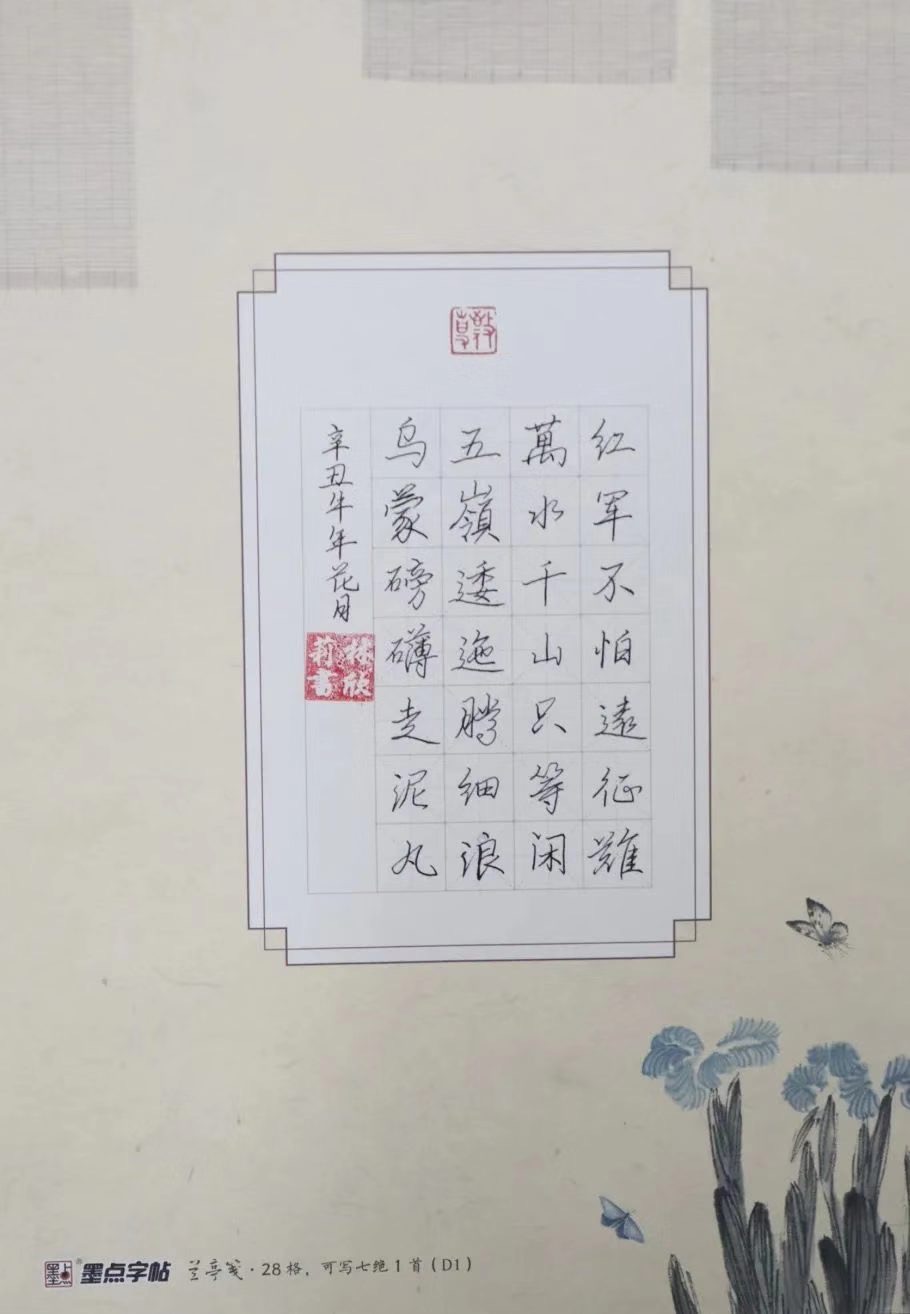 红军不怕遠征難
萬水千山只等闲
五嶺逶迤腾细浪
乌蒙磅礴走泥丸
辛丑牛年花月
欣莉書
墨点字帖 兰亭笺·28格，可写七绝1首（D1）